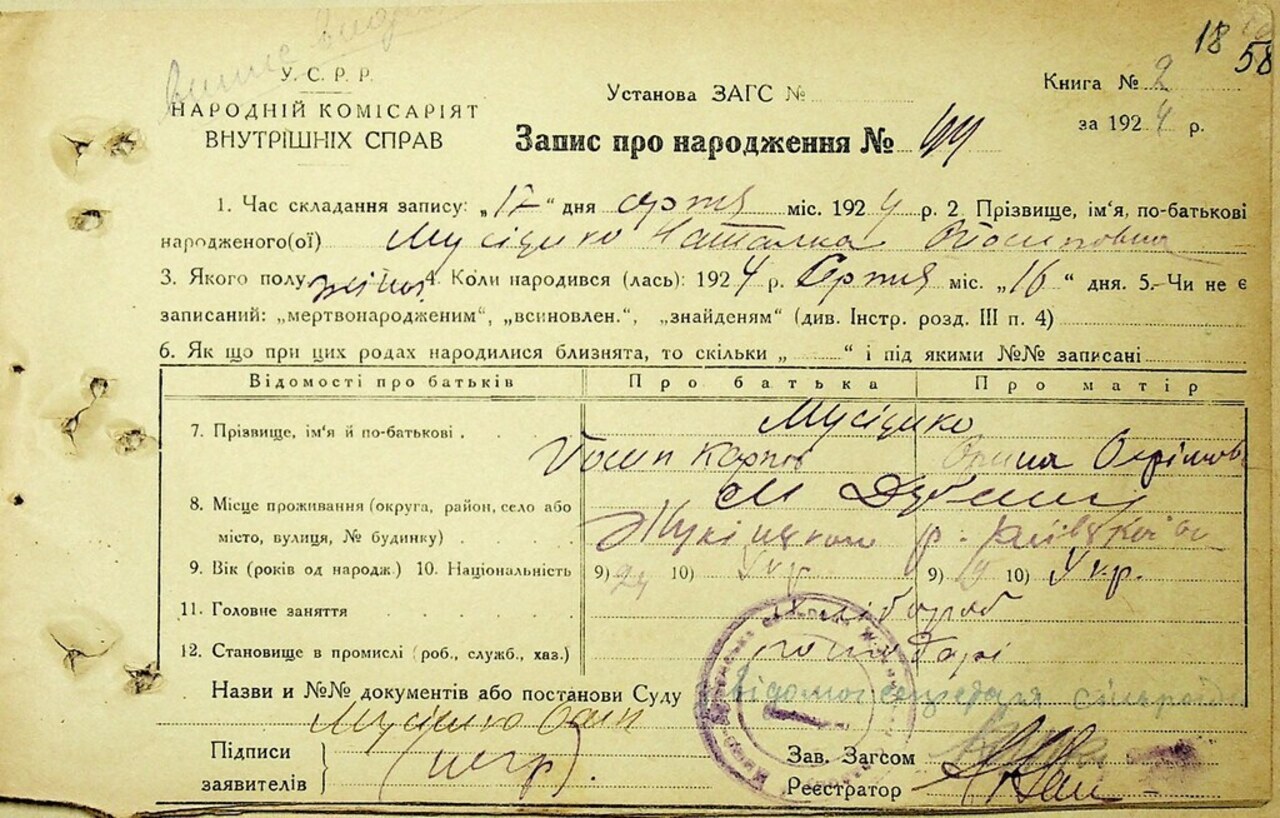 18
58
У. С. Р. Р.
НАРОДНІЙ КОМІСАРІЯТ
ВНУТРІШНІХ СПРАВ
Установа ЗАГС №
Книга № 2
за 1924 р.
Запис про народження № 44
1. Час складання запису: „17" дня серпня міс. 1924 р. 2. Прізвище, ім'я, по-батькові
народженого(ої) Мусієнко Наталка Осиповна
3. Якого полу жіноч. 4. Коли народився (лась): 1924 р. Серпня міс. „16" дня. 5. Чи не є
записаний: „мертвонародженим", „всиновлен.", „знайденям" (див. Інстр. розд. III п. 4)
6. Як що при цих родах народилися близнята, то скільки „ " і під якими №№ записані
Відомості про батьків Про батька Про матір
7. Прізвище, ім'я й по-батькові Мусієнко
Йосип Карпов
8. Місце проживання (округа, район, село або
місто, вулиця, № будинку)
9. Вік (років од народж.) 10. Національність 9) 24 10) Укр. 9) 10) Укр.
11. Головне заняття хлібороб
12. Становище в промислі (роб., служб., хаз.) господарі
Назви и №№ документів або постанови Суду
Мусієнко
Підписи
заявителів
(негр).
Зав. Загсом
Реєстратор